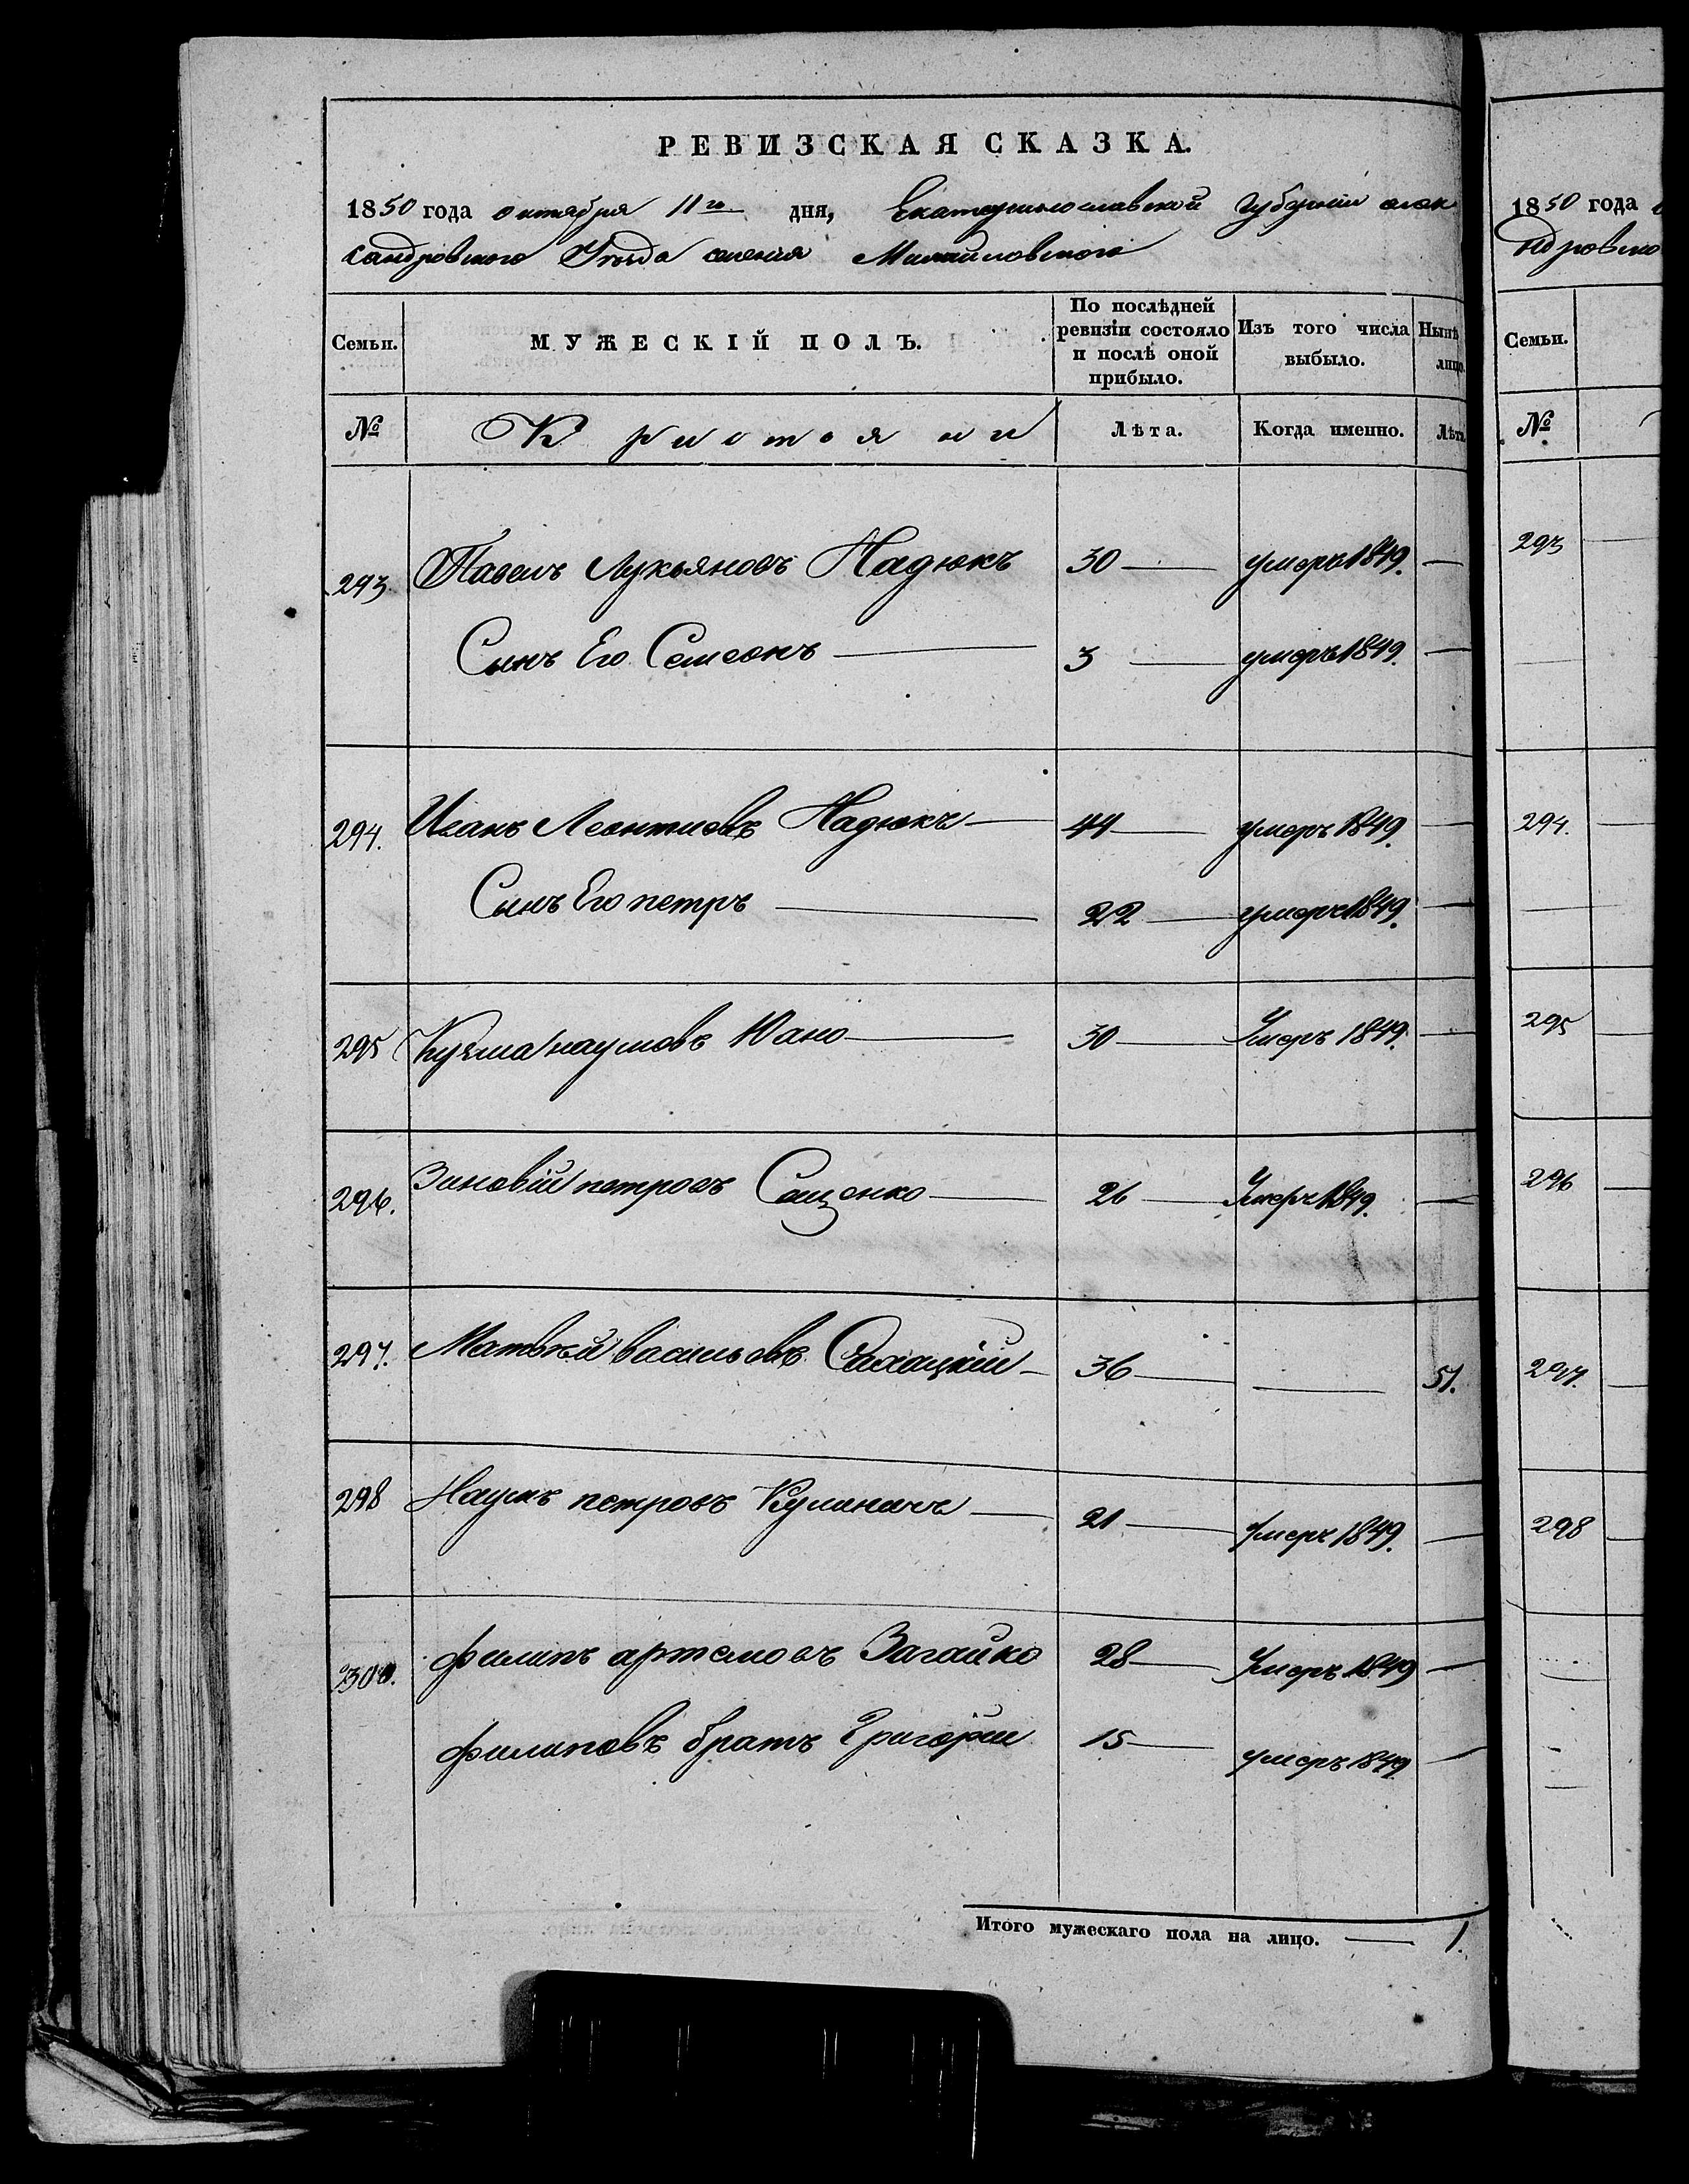 РЕВИЗСКАЯ СКАЗКА.
1850 года октября 11го дня, Екатеринославской Губернии алек
сандровского Уезда селения Михайловского
Семьи.
МУЖЕСКІЙ ПОЛЪ.
По послѣдней ревизіи состояло и послѣ оной прибыло.
Изъ того числа выбыло.
Нынѣ лицо.
№ Кристояни Лѣта. Когда именно. Лѣта
293. Павелъ Лукьяновъ Надюкъ 30 — умеръ 1849. —
Сынъ Его Семеонъ — 3 — умеръ 1849. —
294. Иванъ Леонтиевъ Надюкъ — 44 — умеръ 1849. —
Сынъ Его петръ — 22 — умеръ 1849. —
295 Кузма наумовъ Юано — 30 — Умеръ 1849. —
296. Зиновій петровъ Сащенко — 26 — Умеръ 1849. —
297. Матвѣй васильевъ Сахацкій — 36 — — 51.
298 Наумъ петровъ Кулиничъ — 21 — умеръ 1849. —
300. филипъ артемовъ Загайко 28 — Умеръ 1849 —
филиповъ братъ Григорій 15 — умеръ 1849 —
Итого мужескаго пола на лицо. — 1.
1850 года
ндровско
Семьи.
№
293
294.
295
296
297.
298